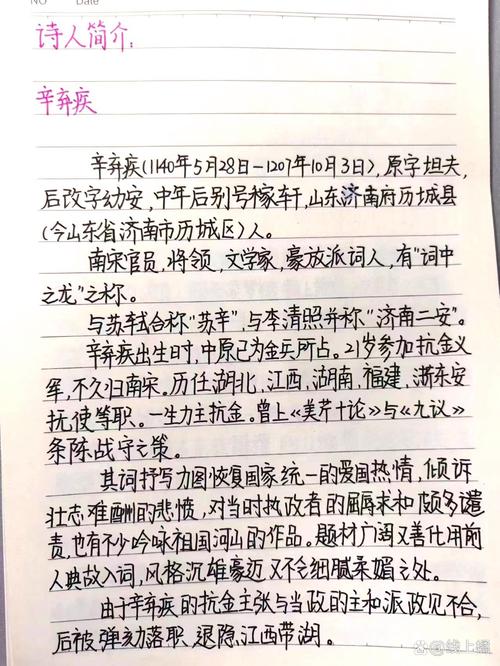 NO
Date
诗人简介:
辛弃疾
辛弃疾(1140年5月28日-1207年10月3日),原字坦夫,
后改字幼安,中年后别号稼轩,山东济南府历城县
(今山东省济南市历城区)人。
南宋官员,将领,文学家,豪放派词人,有"词中
之龙"之称。
与苏轼合称"苏辛",与李清照并称"济南二安"。
辛弃疾出生时,中原已为金兵所占。21岁参加抗金义
军,不久归南宋。历任湖北,江西,湖南,福建,浙东安
抚使等职。一生力主抗金。曾上《美芹十论》与《九议》
条陈战守之策。
其词抒写力图恢复国家统一的爱国热情,倾诉
壮志难酬的悲愤,对当时执政者的屈辱求和颇多谴
责,也有不少吟咏祖国河山的作品。题材广阔又善化用前
人典故入词,风格沉雄豪迈又不乏细腻柔媚之处。
由于辛弃疾的抗金主张与当政的主和派政见不合,
后被弹劾落职,退隐江西带湖。
线上缊